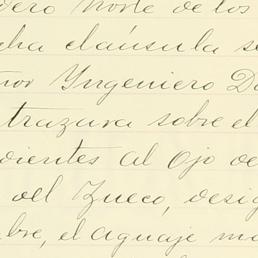 dero Norte de los
cha cláusula se
ñor Yngeniero D
trazura sobre el
dientes al Ojo de
del Zueco, desig
bre, el aguaje m